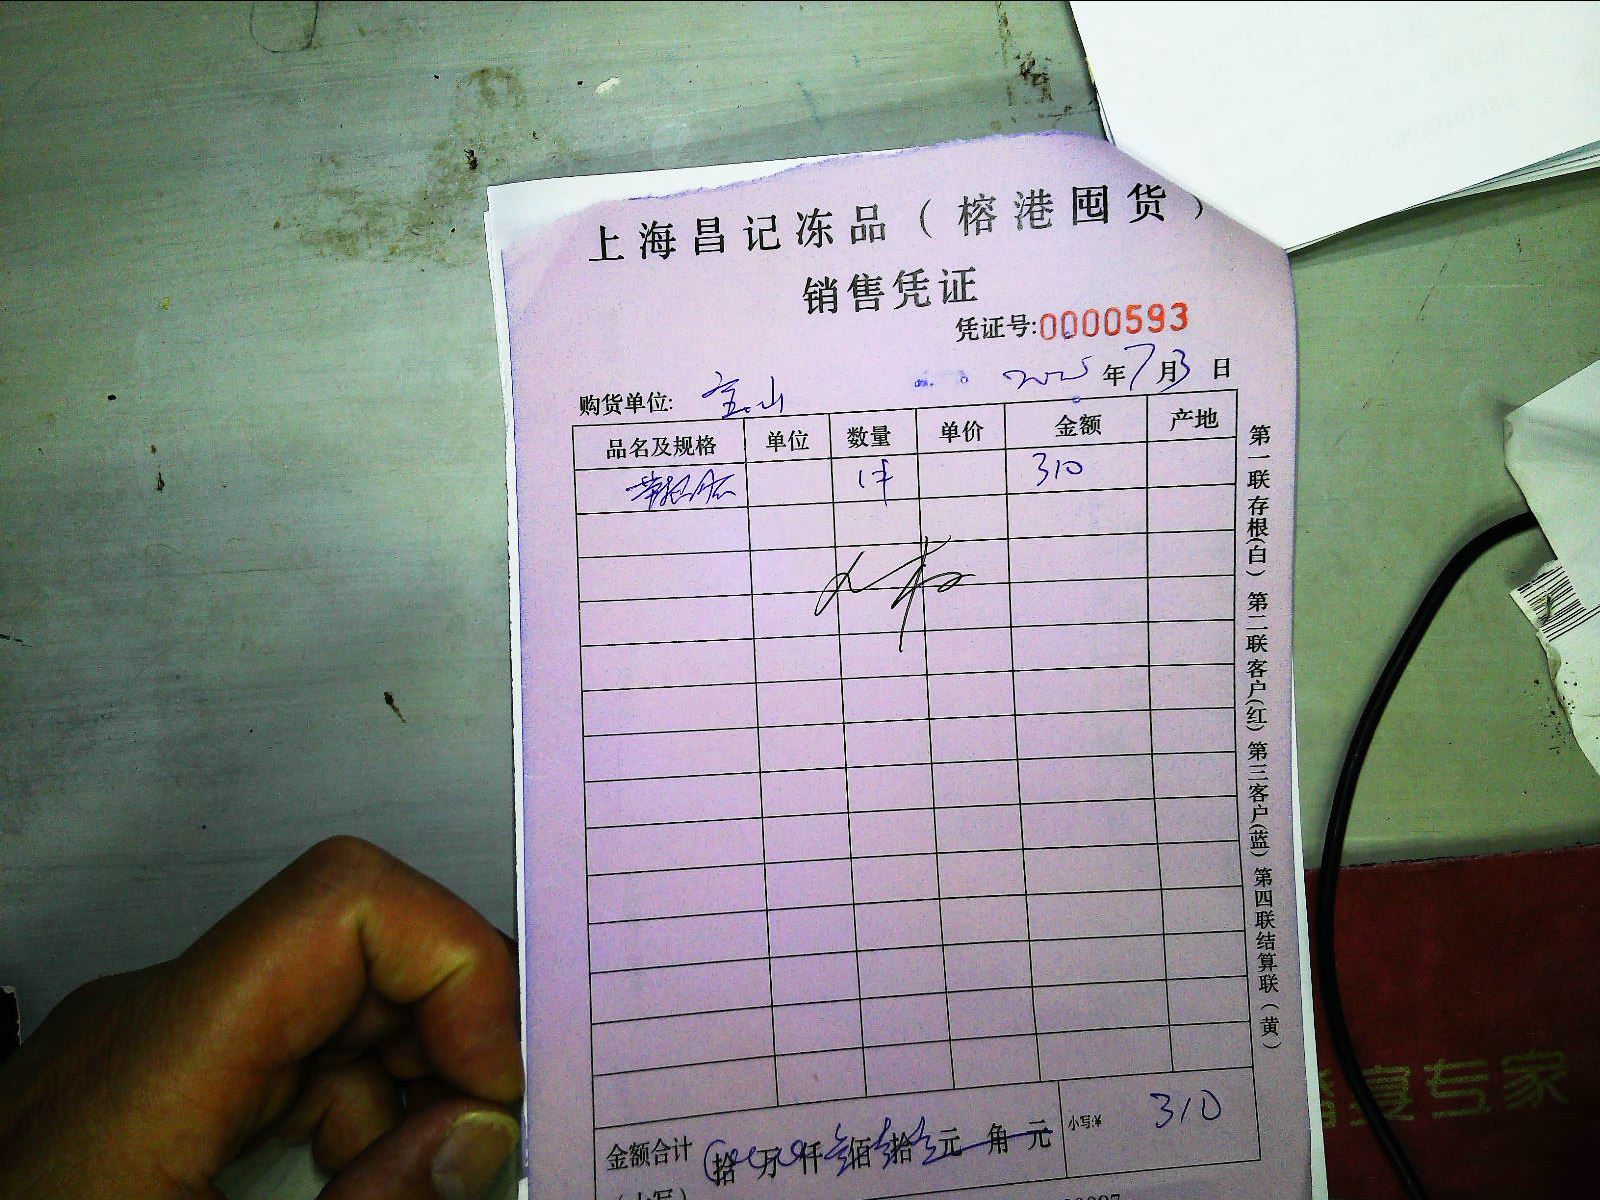 上海昌记冻品（榕港囤货）
销售凭证
凭证号:0000593
购货单位: 宝山 2025 年 7 月 3 日
品名及规格 单位 数量 单价 金额 产地
1件 310
金额合计 拾 万 仟 叁佰 壹拾 元 角 元 小写:¥ 310
（大写）
第一联存根(白) 第二联客户(红) 第三客户(蓝) 第四联结算联（黄）
专家